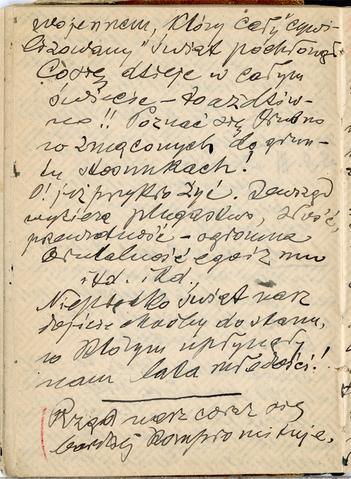 wojennem, który cały "cywi-
lizowany" świat pochłonął.
Co się dzieje w całym
świecie –
!! Poznać się trudno
w zmąconych do grun-
tu stosunkach!
O! już przykro żyć. Zewsząd
wyziera plugastwo, złość,
przewrotność – ogromna
brutalność egoizmu
itd. itd.
Nieprędko świat nasz
dojdzie choćby do stanu,
w którym upłynęły
nam lata młodości!
Rząd nasz coraz się
bardziej kompromituje.